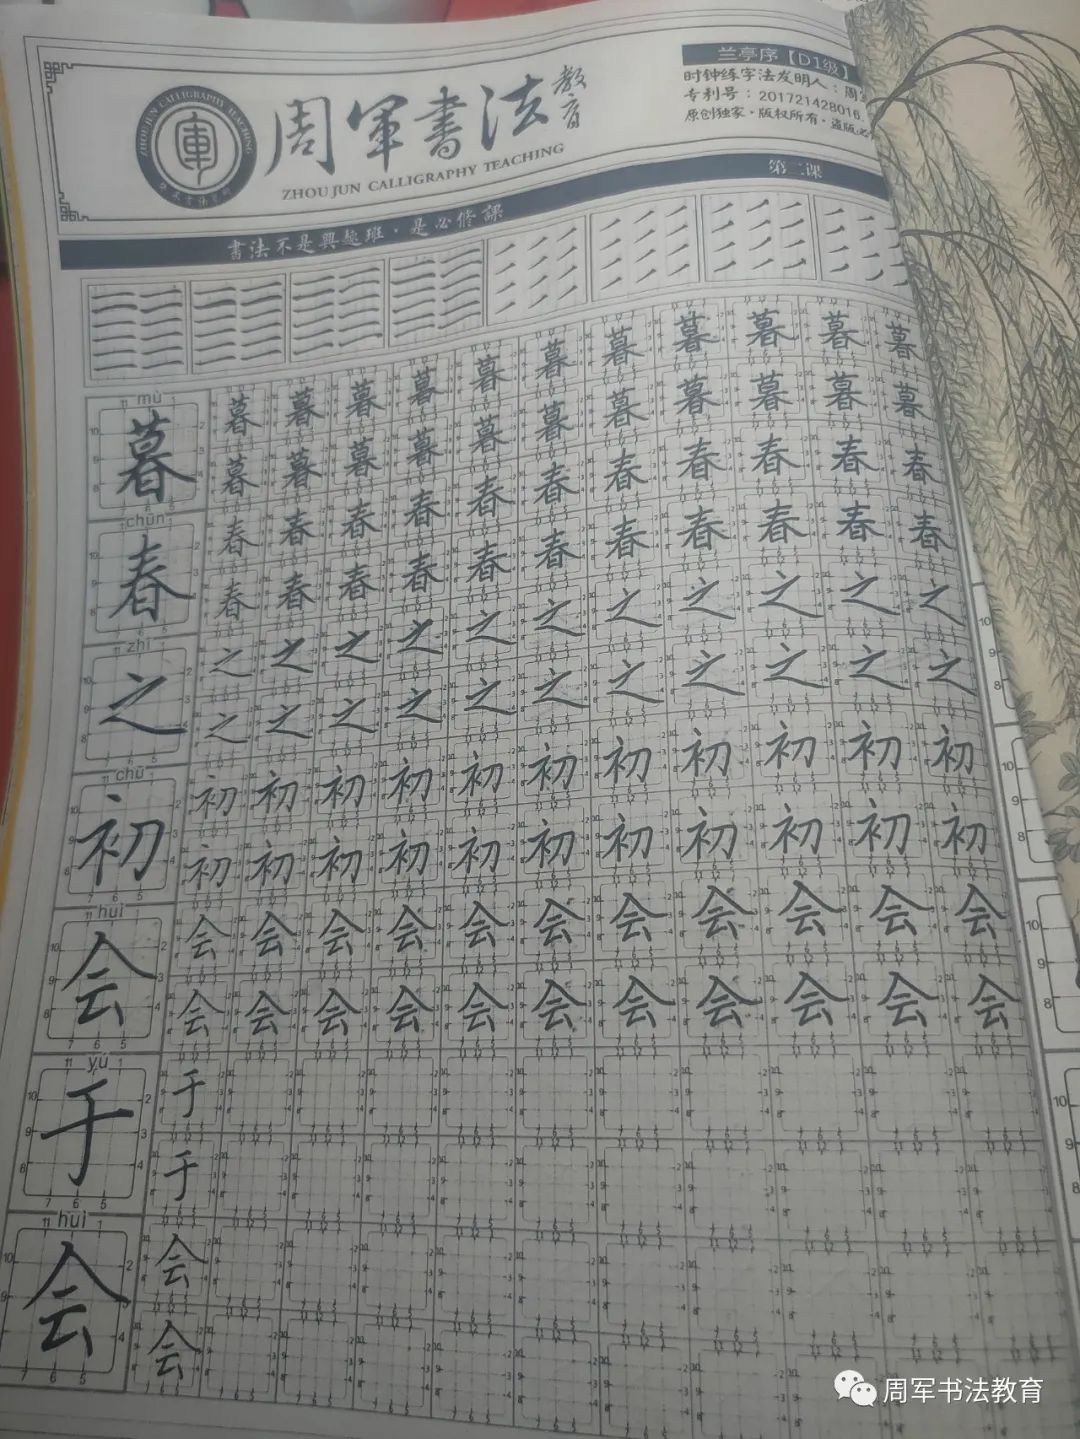 兰亭序【D1级】
时钟练字法发明人：周
专利号：201721428016.
原创独家·版权所有·盗版必
ZHOU JUN CALLIGRAPHY TEACHING
周軍書法教育
ZHOU JUN CALLIGRAPHY TEACHING
第二课
書法不是興趣班·是必修課
mù
暮 暮 暮 暮 暮 暮 暮 暮 暮 暮 暮 暮
暮 暮 暮 暮 暮 暮 暮 暮 暮 暮 暮
chūn
春 春 春 春 春 春 春 春 春 春 春 春
春 春 春 春 春 春 春 春 春 春 春
zhī
之 之 之 之 之 之 之 之 之 之 之 之
之 之 之 之 之 之 之 之 之 之 之
chū
初 初 初 初 初 初 初 初 初 初 初 初
初 初 初 初 初 初 初 初 初 初 初
huì
会 会 会 会 会 会 会 会 会 会 会 会
会 会 会 会 会 会 会 会 会 会 会
yú
于 于
于
huì
会 会
会
周军书法教育